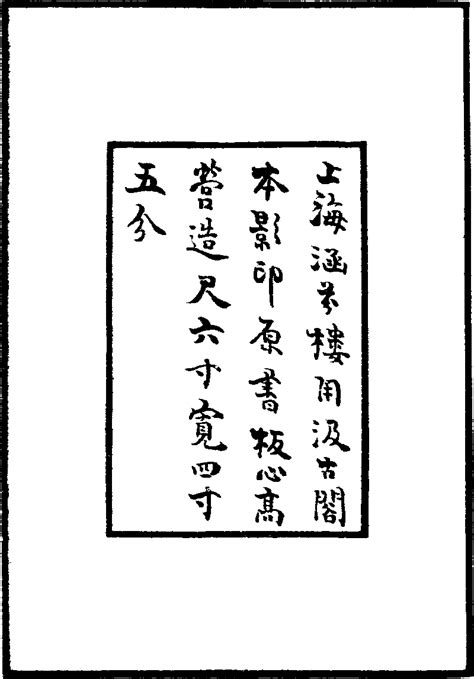 上海涵芬樓用汲古閣
本影印原書板心高
營造尺六寸寬四寸
五分